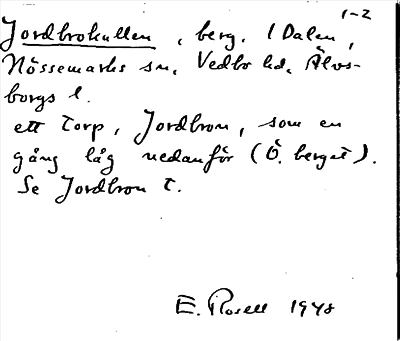 1-2
Jordbrokullen, berg. I Dalen,
Nössemarks sn. Vedbo hd. Älvs-
borgs l.
ett torp, Jordbron, som en
gång låg nedanför (Ö. berget).
Se Jordbron t.
E. Rosell 1948